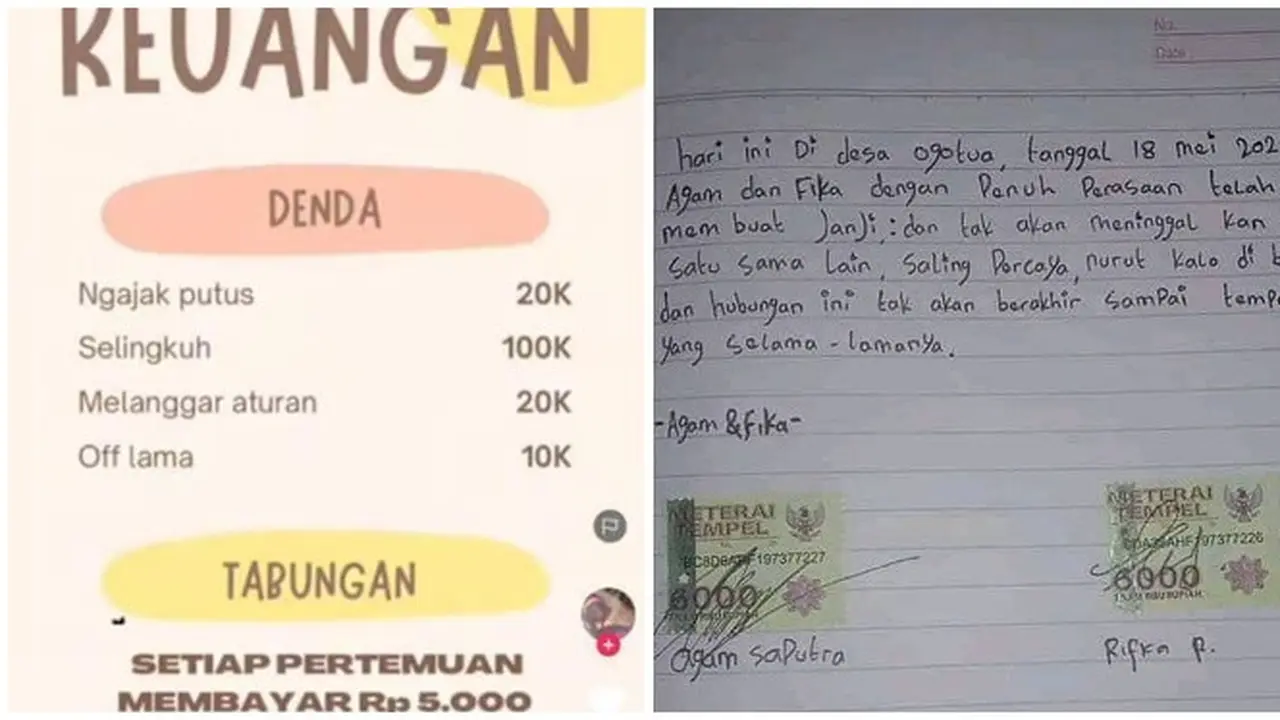 KEUANGAN
DENDA
Ngajak putus 20K
Selingkuh 100K
Melanggar aturan 20K
Off lama 10K
TABUNGAN
SETIAP PERTEMUAN
MEMBAYAR Rp 5.000
No.
Date
hari ini Di desa ogotua, tanggal 18 mei 202
Agam dan Fika dengan Penuh Perasaan telah
mem buat JanJi,: dan tak akan meninggal kan
satu sama lain, saling Percaya, nurut kalo di
dan hubungan ini tak akan berakhir samPai
yang selama - lamanya.
-Agam & Fika-
METERAI
TEMPEL
6000
ENAM RIBU RUPIAH
agam saPutra
METERAI
TEMPEL
197377226
6000
Rifka P.